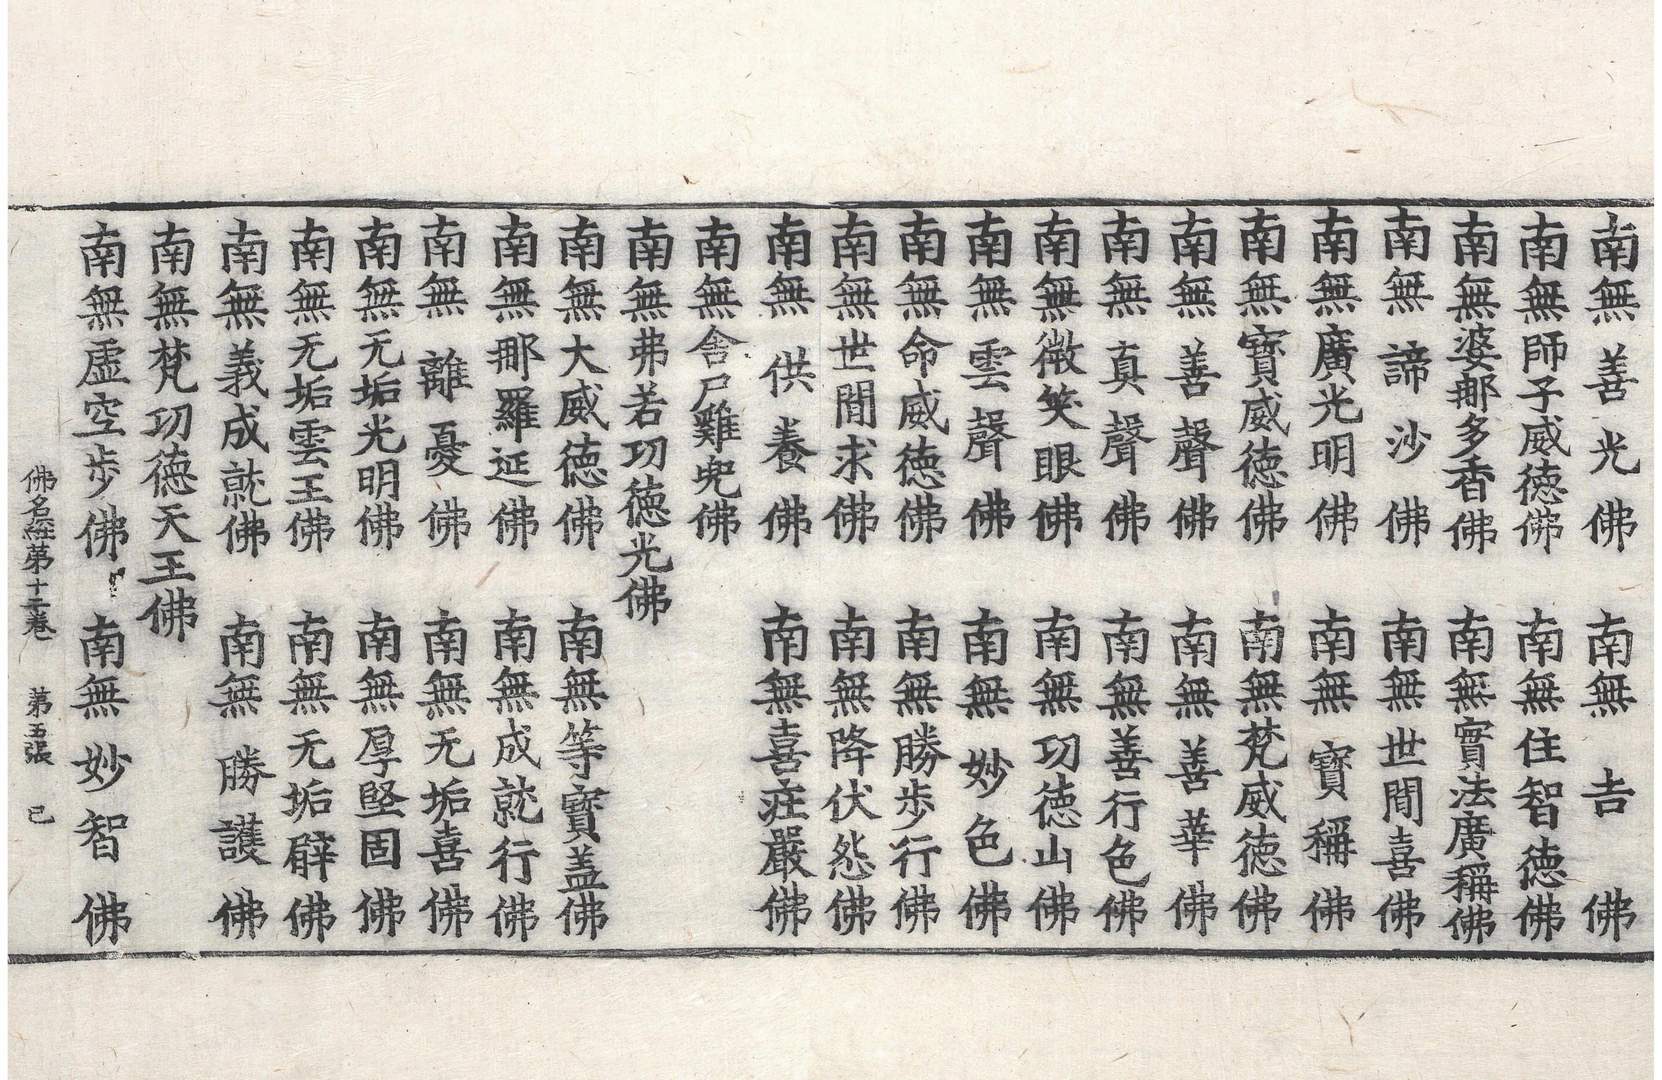 南無善光佛　南無吉佛
南無師子威德佛　南無住智德佛
南無婆那多香佛　南無實法廣稱佛
南無諦沙佛　南無世間喜佛
南無廣光明佛　南無寶稱佛
南無寶威德佛　南無梵威德佛
南無善聲佛　南無善華佛
南無真聲佛　南無善行色佛
南無微笑眼佛　南無功德山佛
南無雲聲佛　南無妙色佛
南無命威德佛　南無勝步行佛
南無世間求佛　南無降伏怨佛
南無供養佛　南無喜莊嚴佛
南無舍尸難兜佛
南無弗若功德光佛
南無大威德佛　南無等寶盖佛
南無那羅延佛　南無成就行佛
南無離憂佛　南無无垢喜佛
南無无垢光明佛　南無厚堅固佛
南無无垢雲王佛　南無无垢臂佛
南無義成就佛　南無勝護佛
南無梵功德天王佛
南無虛空步佛　南無妙智佛
佛名經第十二卷　第五張　已